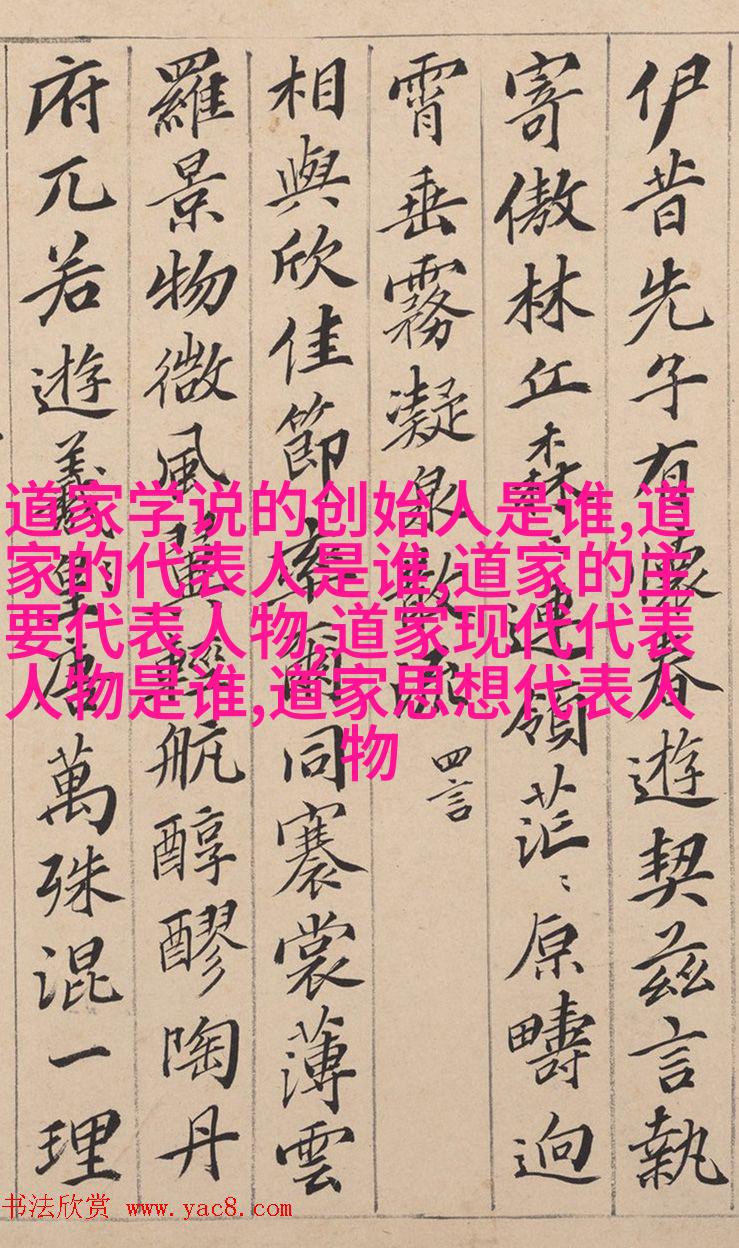 伊昔先子有懷春遊契茲言執
寄傲林丘森〻連領茫〻原疇迥
霄垂霧凝泉散流 四言
相與欣佳節率爾同褰裳薄雲
羅景物微風翼輕航醇醪陶丹
府兀若遊羲唐萬殊混一理
道家学说的创始人是谁,道
家的代表人是谁,道家的主
要代表人物,道家现代代表
人物是谁,道家思想代表人
物
书法欣赏 www.yac8.com